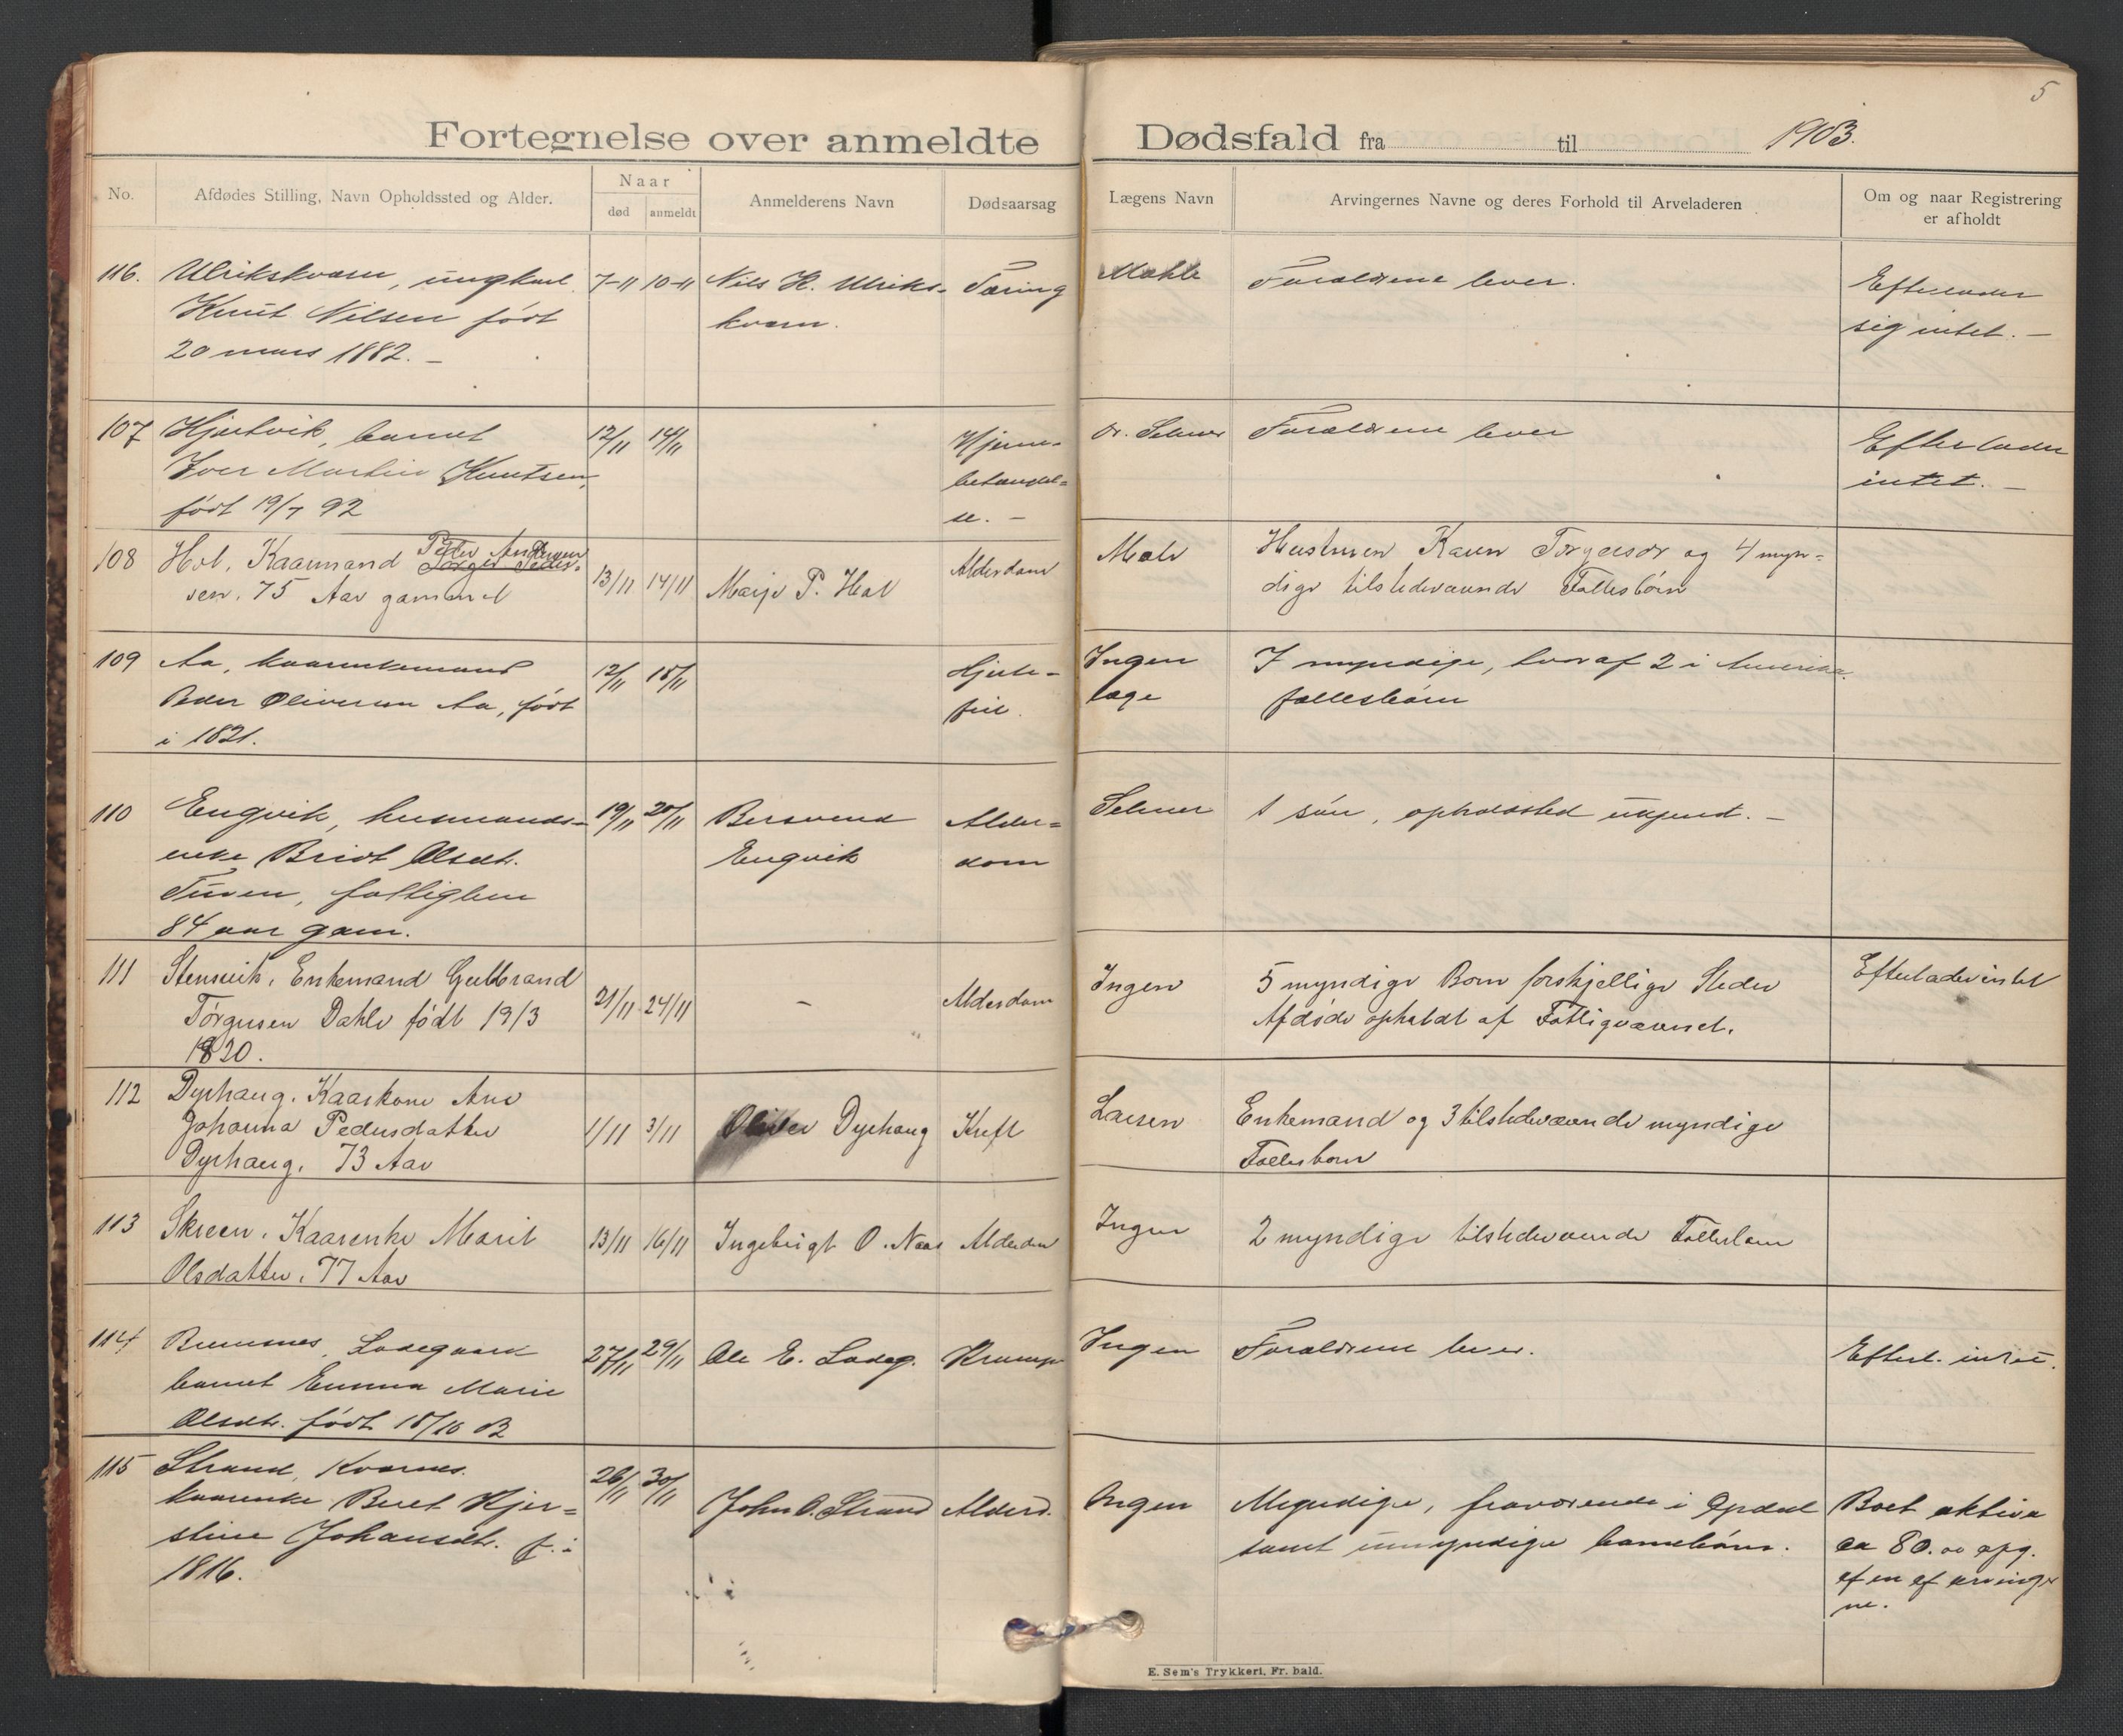 5
Fortegnelse over anmeldte Dødsfald fra til 1903.
No. Afdødes Stilling, Navn Opholdssted og Alder. Naar død anmeldt Anmelderens Navn Dødsaarsag Lægens Navn Arvingernes Navne og deres Forhold til Arveladeren Om og naar Registrering er afholdt
116. Ulrikskvarn, ungkarl 7-11 10-11 Nils K. Ulriks- Tæring Forældrene lever. Efterlader
Knut Nilsen født kvarn. sig intet. –
20 mars 1882. –
107 barnet 12/11 14/11 Hjerne- Dr. Selmer Forældrene lever Efterlader
Iver Martin Knutsen, betændel- intet. –
født 19/7 92 se. –
108 Hol, Kaarmand Peder Andersen 13/11 14/11 Marje P. Hol Alderdom Hustruen Karen Torgersdr og 4 myn-
sen, 75 Aar gammel dige tilstedeværende Fællesbörn
109 Aa, kaarenkemand 12/11 18/11 Hjerte- Ingen 7 myndige, hvoraf 2 i Amerika
Peder Oliversen Aa, født feil. læge fællesbørn
i 1821.
110 Engvik, husmands- 19/11 20/11 Bersvend Alder- Selmer 1 søn, opholdssted ukjendt. –
enke Brit Olsdtr. Engvik dom
fattiglem
84 aar gam.
111 Stensvik, Enkemand Gulbrand 21/11 24/11 – Alderdom Ingen 5 myndige Børn forskjellige Steder Efterlader intet
Törgersen Dahle født 19/3 Afdøde opholdt af Fattigvæsenet.
1820.
112 Dyrhaug, Kaarkone Ane 1/11 3/11 Oliver Dyrhaug Kreft Larsen Enkemand og 3 tilstedeværende myndige
Johanna Pedersdatter Fællesbørn
Dyrhaug, 73 Aar
113 Skreen, Kaarenke Marit 13/11 16/11 Ingebrigt O. Naas Alderdom Ingen 2 myndige tilstedeværende Fællesbørn
Olsdatter, 77 Aar
114 Bremsnes, Ladegaard 27/11 29/11 Ole E. Ladeg. Krampe Ingen Forældrene lever. Efterl. intet.
barnet Emma Marie
Olsdtr. født 18/10 03
115 Strand, Kvernes. 26/11 30/11 John O. Strand Alderd. Ingen Myndige, fraværende i Opdal Boet aktiva
kaarenke Beret Kjer- samt umyndige barnebørn. ca 80.00 opg.
stine Johansdtr. f. i af en af arvinger
1816. ne.
E. Sem's Trykkeri, Fr. hald.